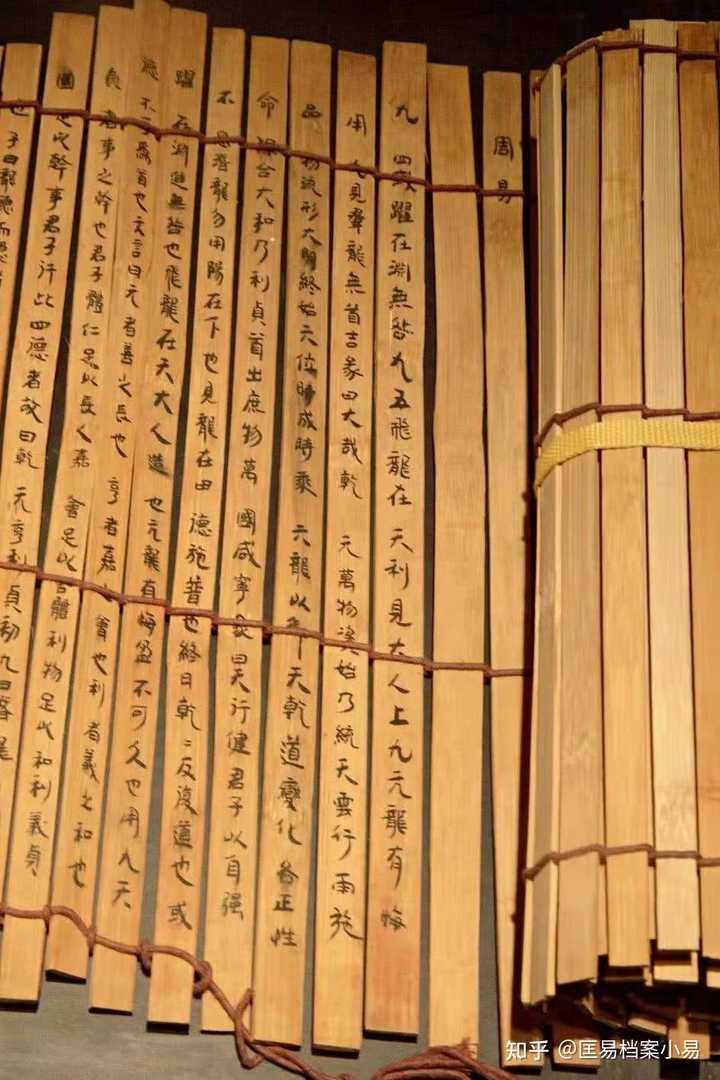 周易
九四或躍在淵無咎九五飛龍在天利見大人上九元龍有悔
用九見羣龍無首吉彖曰大哉乾元萬物資始乃統天雲行雨施
品物流形大明終始六位時成時乘六龍以御天乾道變化各正性
命保合大和乃利貞首出庶物萬國咸寧象曰天行健君子以自强
不息潛龍勿用陽在下也見龍在田德施普也終日乾〻反復道也或
躍在淵進無咎也飛龍在天大人造也元龍有悔盈不可久也用九天
德不可爲首也文言曰元者善之長也亨者嘉之會也利者義之和也
貞者事之幹也君子體仁足以長人嘉會足以合體利物足以和利義貞
固足以幹事君子行此四德者故曰乾元亨利貞初九曰潛龍
也子曰龍德而隱者
知乎 @匡易档案小易